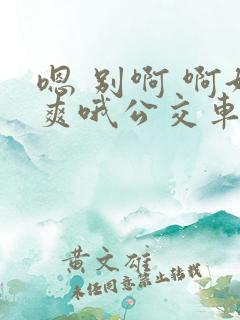 嗯 别啊 啊好
爽哦公交车
黄文雄
未经同意禁止转载